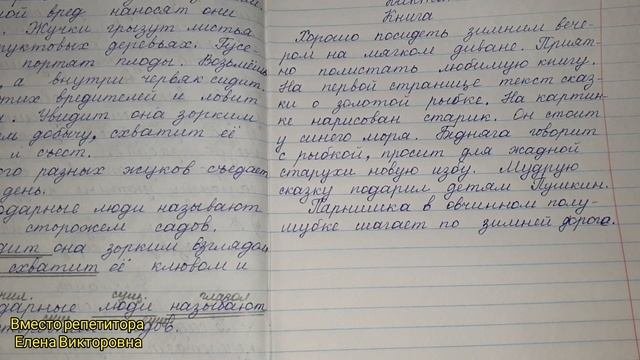 ной вред наносят они
. Жучки грызут листья
фруктовых деревьев. Гусе-
портят плоды. Возьмёшь
, а внутри червяк сидит.
этих вредителей и ловит
. Увидит она зорким
добычу, схватит её
и съест.
ого разных жуков съедает
день.
одарные люди называют
сторожем садов.
дит она зорким взглядом
схватит её клювом и
сущ. глагол
дарные люди называют
Книга
Хорошо посидеть зимним вече-
ром на мягком диване. Прият-
но полистать любимую книгу.
На первой странице текст сказ-
ки о золотой рыбке. На картин-
ке нарисован старик. Он стоит
у синего моря. Бедняга говорит
с рыбкой, просит для жадной
старухи новую избу. Мудрую
сказку подарил детям Пушкин.
Парнишка в овчинном полу-
шубке шагает по зимней дороге.
Вместо репетитора
Елена Викторовна